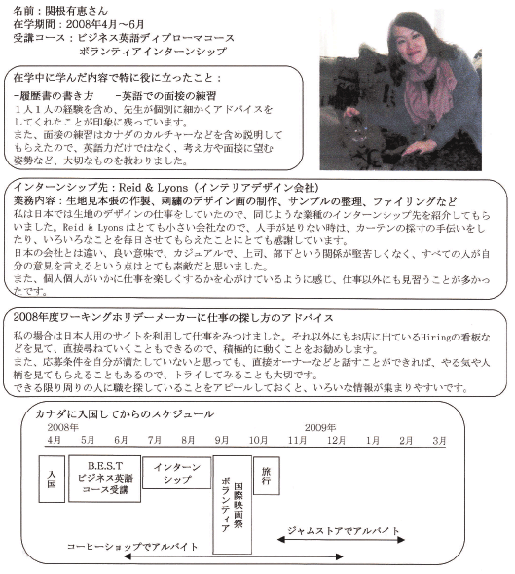 名前：関根有恵さん
在学期間：2008年4月～6月
受講コース：ビジネス英語ディプローマコース
ボランティアインターンシップ
在学中に学んだ内容で特に役に立ったこと：
-履歴書の書き方　-英語での面接の練習
１人１人の経験を含め、先生が個別に細かくアドバイスを
してくれたことが印象に残っています。
また、面接の練習はカナダのカルチャーなどを含め説明して
もらえたので、英語力だけではなく、考え方や面接に望む
姿勢など、大切なものを教わりました。
インターンシップ先：Reid & Lyons（インテリアデザイン会社）
業務内容：生地見本張の作製、刺繍のデザイン画の制作、サンプルの整理、ファイリングなど
私は日本では生地のデザインの仕事をしていたので、同じような業種のインターンシップ先を紹介してもら
いました。Reid & Lyonsはとても小さい会社なので、人手が足りない時は、カーテンの採寸の手伝いをし
たり、いろいろなことを毎日させてもらえたことにとても感謝しています。
日本の会社とは違い、良い意味で、カジュアルで、上司、部下という関係が堅苦しくなく、すべての人が自
分の意見を言えるという点はとても素敵だと思いました。
また、個人個人がいかに仕事を楽しくするかを心がけているように感じ、仕事以外にも見習うことが多かっ
たです。
2008年度ワーキングホリデーメーカーに仕事の探し方のアドバイス
私の場合は日本人用のサイトを利用して仕事をみつけました。それ以外にもお店に出ているHiringの看板な
どを見て、直接尋ねていくこともできるので、積極的に動くことをお勧めします。
また、応募条件を自分が満たしていないと思っても、直接オーナーなどと話すことができれば、やる気や人
柄を見てもらえることもあるので、トライしてみることも大切です。
できる限り周りの人に職を探していることをアピールしておくと、いろいな情報が集まりやすいです。
カナダに入国してからのスケジュール
2008年　2009年
4月　5月　6月　7月　8月　9月　10月　11月　12月　1月　2月　3月
入国
B.E.S.T
ビジネス英語
コース受講
インターン
シップ
国際映画祭
ボランティア
旅行
ジャムストアでアルバイト
コーヒーショップでアルバイト